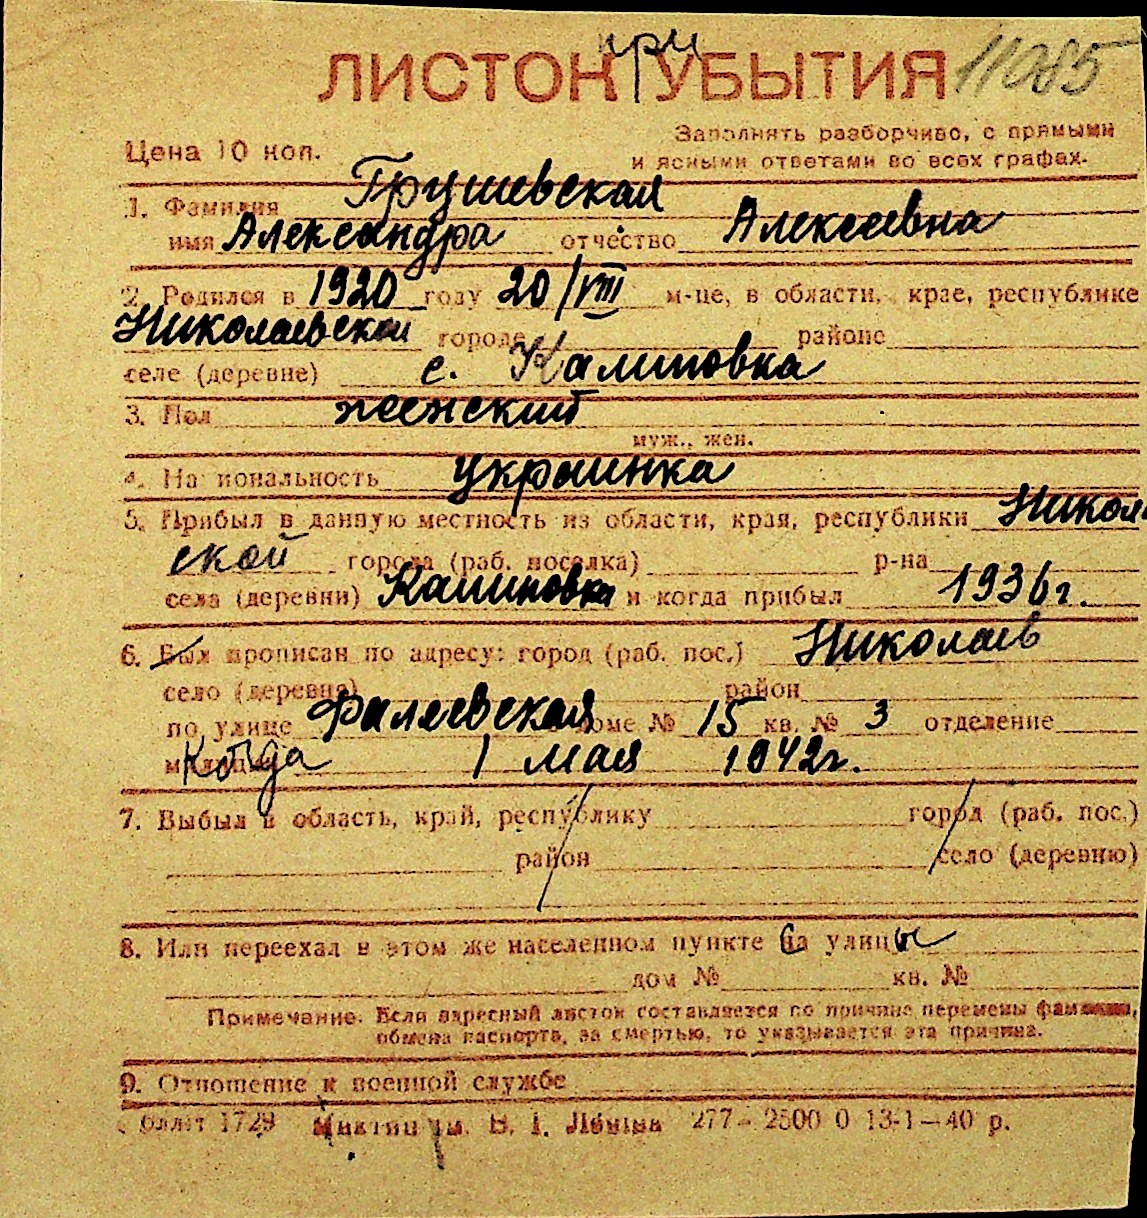 при
ЛИСТОК УБЫТИЯ 11085
Цена 10 коп.
Заполнять разборчиво, с прямыми
и ясными ответами во всех графах.
1. Фамилия Грушевская
имя Александра отчество Алексеевна
2. Родился в 1920 году 20/VIII м-це, в области, крае, республике
Николаевской городе районе
селе (деревне) с. Калиновка
3. Пол женский
муж., жен.
4. Национальность украинка
5. Прибыл в данную местность из области, края, республики Никол
ской города (раб. поселка) р-на
села (деревни) Калиновка и когда прибыл 1936 г.
6. Был прописан по адресу: город (раб. пос.) Николаев
село (деревня) район
по улице Фалеевская доме № 15 кв. № 3 отделение
Когда 1 мая 1942 г.
7. Выбыл в область, край, республику город (раб. пос.)
район село (деревню)
8. Или переехал в этом же населенном пункте на улицы
дом № кв. №
Примечание. Если адресный листок составляется по причине перемены фамилии,
обмена паспорта, за смертью, то указывается эта причина.
9. Отношение к военной службе
1729 им. В. І. Леніна 277—2500 0 13-1—40 р.